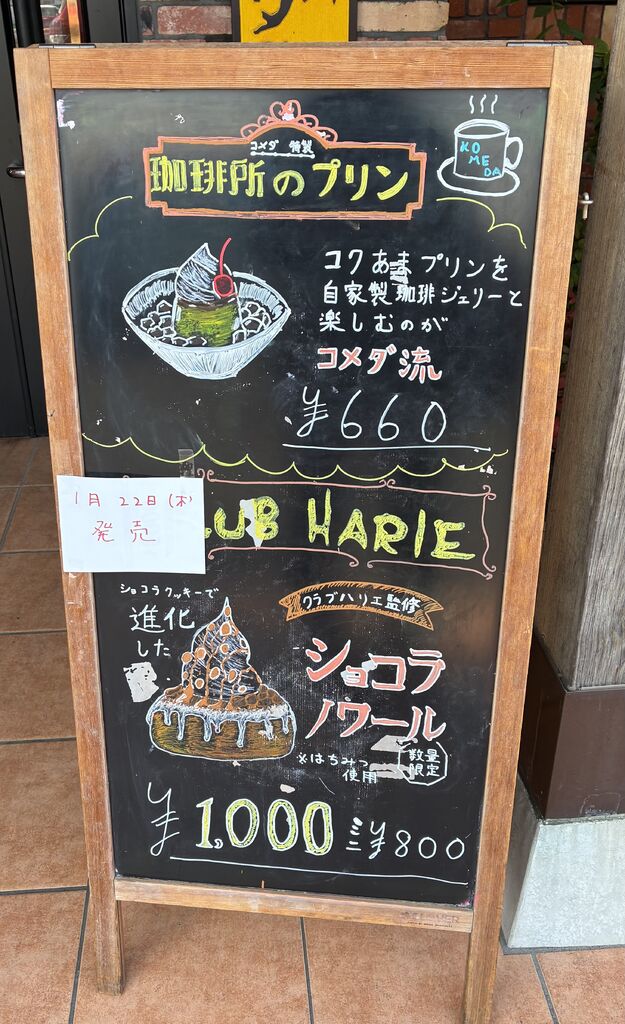 コメダ 特製
珈琲所のプリン
KO
ME
DA
コクあまプリンを
自家製珈琲ジェリーと
楽しむのが
コメダ流
¥660
1月22日(木)
発売
LUB HARIE
ショコラクッキーで
進化
した
クラブハリエ監修
ショコラ
ノワール
※はちみつ
使用
数量
限定
¥1,000 ミニ¥800